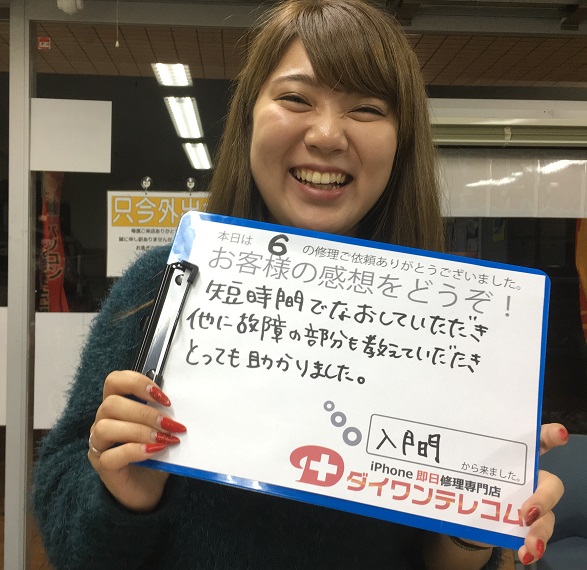 只今外出
毎度ご来店ありがと
誠に申し訳ありません
パソコン
本日は 6 の修理ご依頼ありがとうございました。
お客様の感想をどうぞ！
短時間でなおしていただき
他に故障の部分も教えていだたき
とっても助かりました。
入間
から来ました。
iPhone 即日修理専門店
ダイワンテレコム